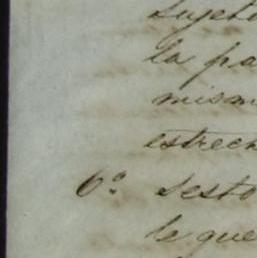 sujeto
la pa
mism
estrech
6.º Sesto
le que